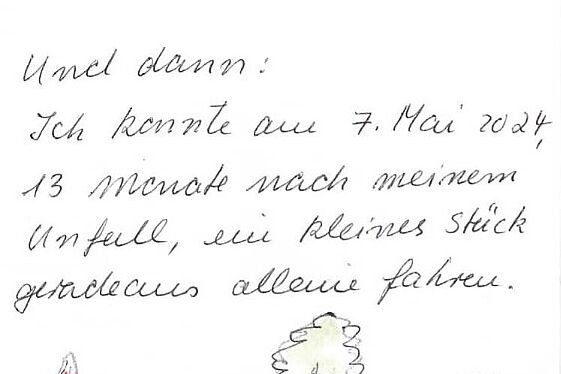 Und dann:
Ich konnte am 7. Mai 2024,
13 Monate nach meinem
Unfall, ein kleines Stück
geradeaus alleine fahren.